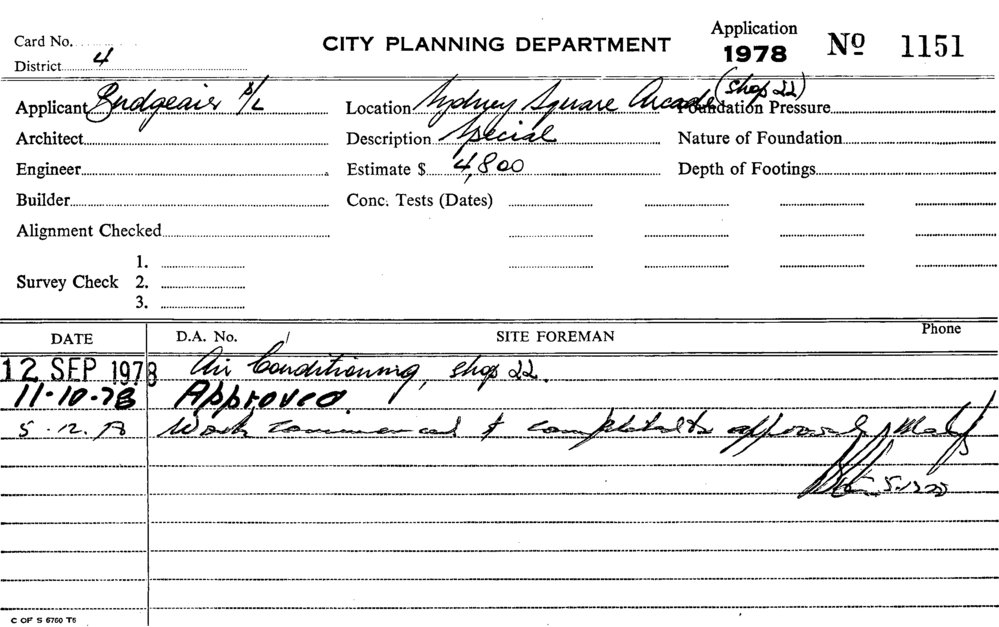 Application
Card No. CITY PLANNING DEPARTMENT 1978 Nº 1151
District 4
(Shop 22)
Applicant Bridgeair P/L Location Sydney Square Arcade Foundation Pressure
Architect Description Special Nature of Foundation
Engineer Estimate $ 4,800 Depth of Footings
Builder Conc. Tests (Dates)
Alignment Checked
1.
Survey Check 2.
3.
DATE D.A. No. SITE FOREMAN Phone
12 SEP 1978 Air Conditioning, Shop 22.
11-10-78 Approved.
5.12.78 Work commenced & completed to approved
5.12.78
C OF S 6760 T6